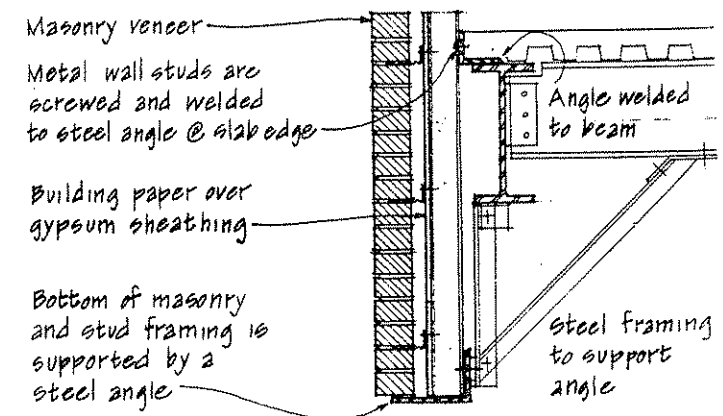 Masonry veneer
Metal wall studs are
screwed and welded
to steel angle @ slab edge
Angle welded
to beam
Building paper over
gypsum sheathing
Bottom of masonry
and stud framing is
supported by a
steel angle
Steel framing
to support
angle